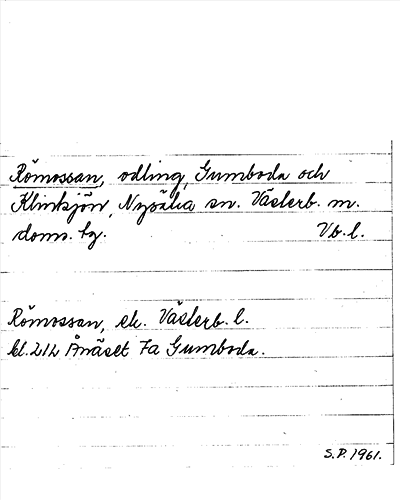 Römossan, odling, Gumboda och
Klinksjön, Nysätra sn. Västerb. m.
doms. tg. Vb. l.
Römossan, ek. Västerb. l.
bl. 212 Ånäset 7a Gumboda.
S.P. 1961.